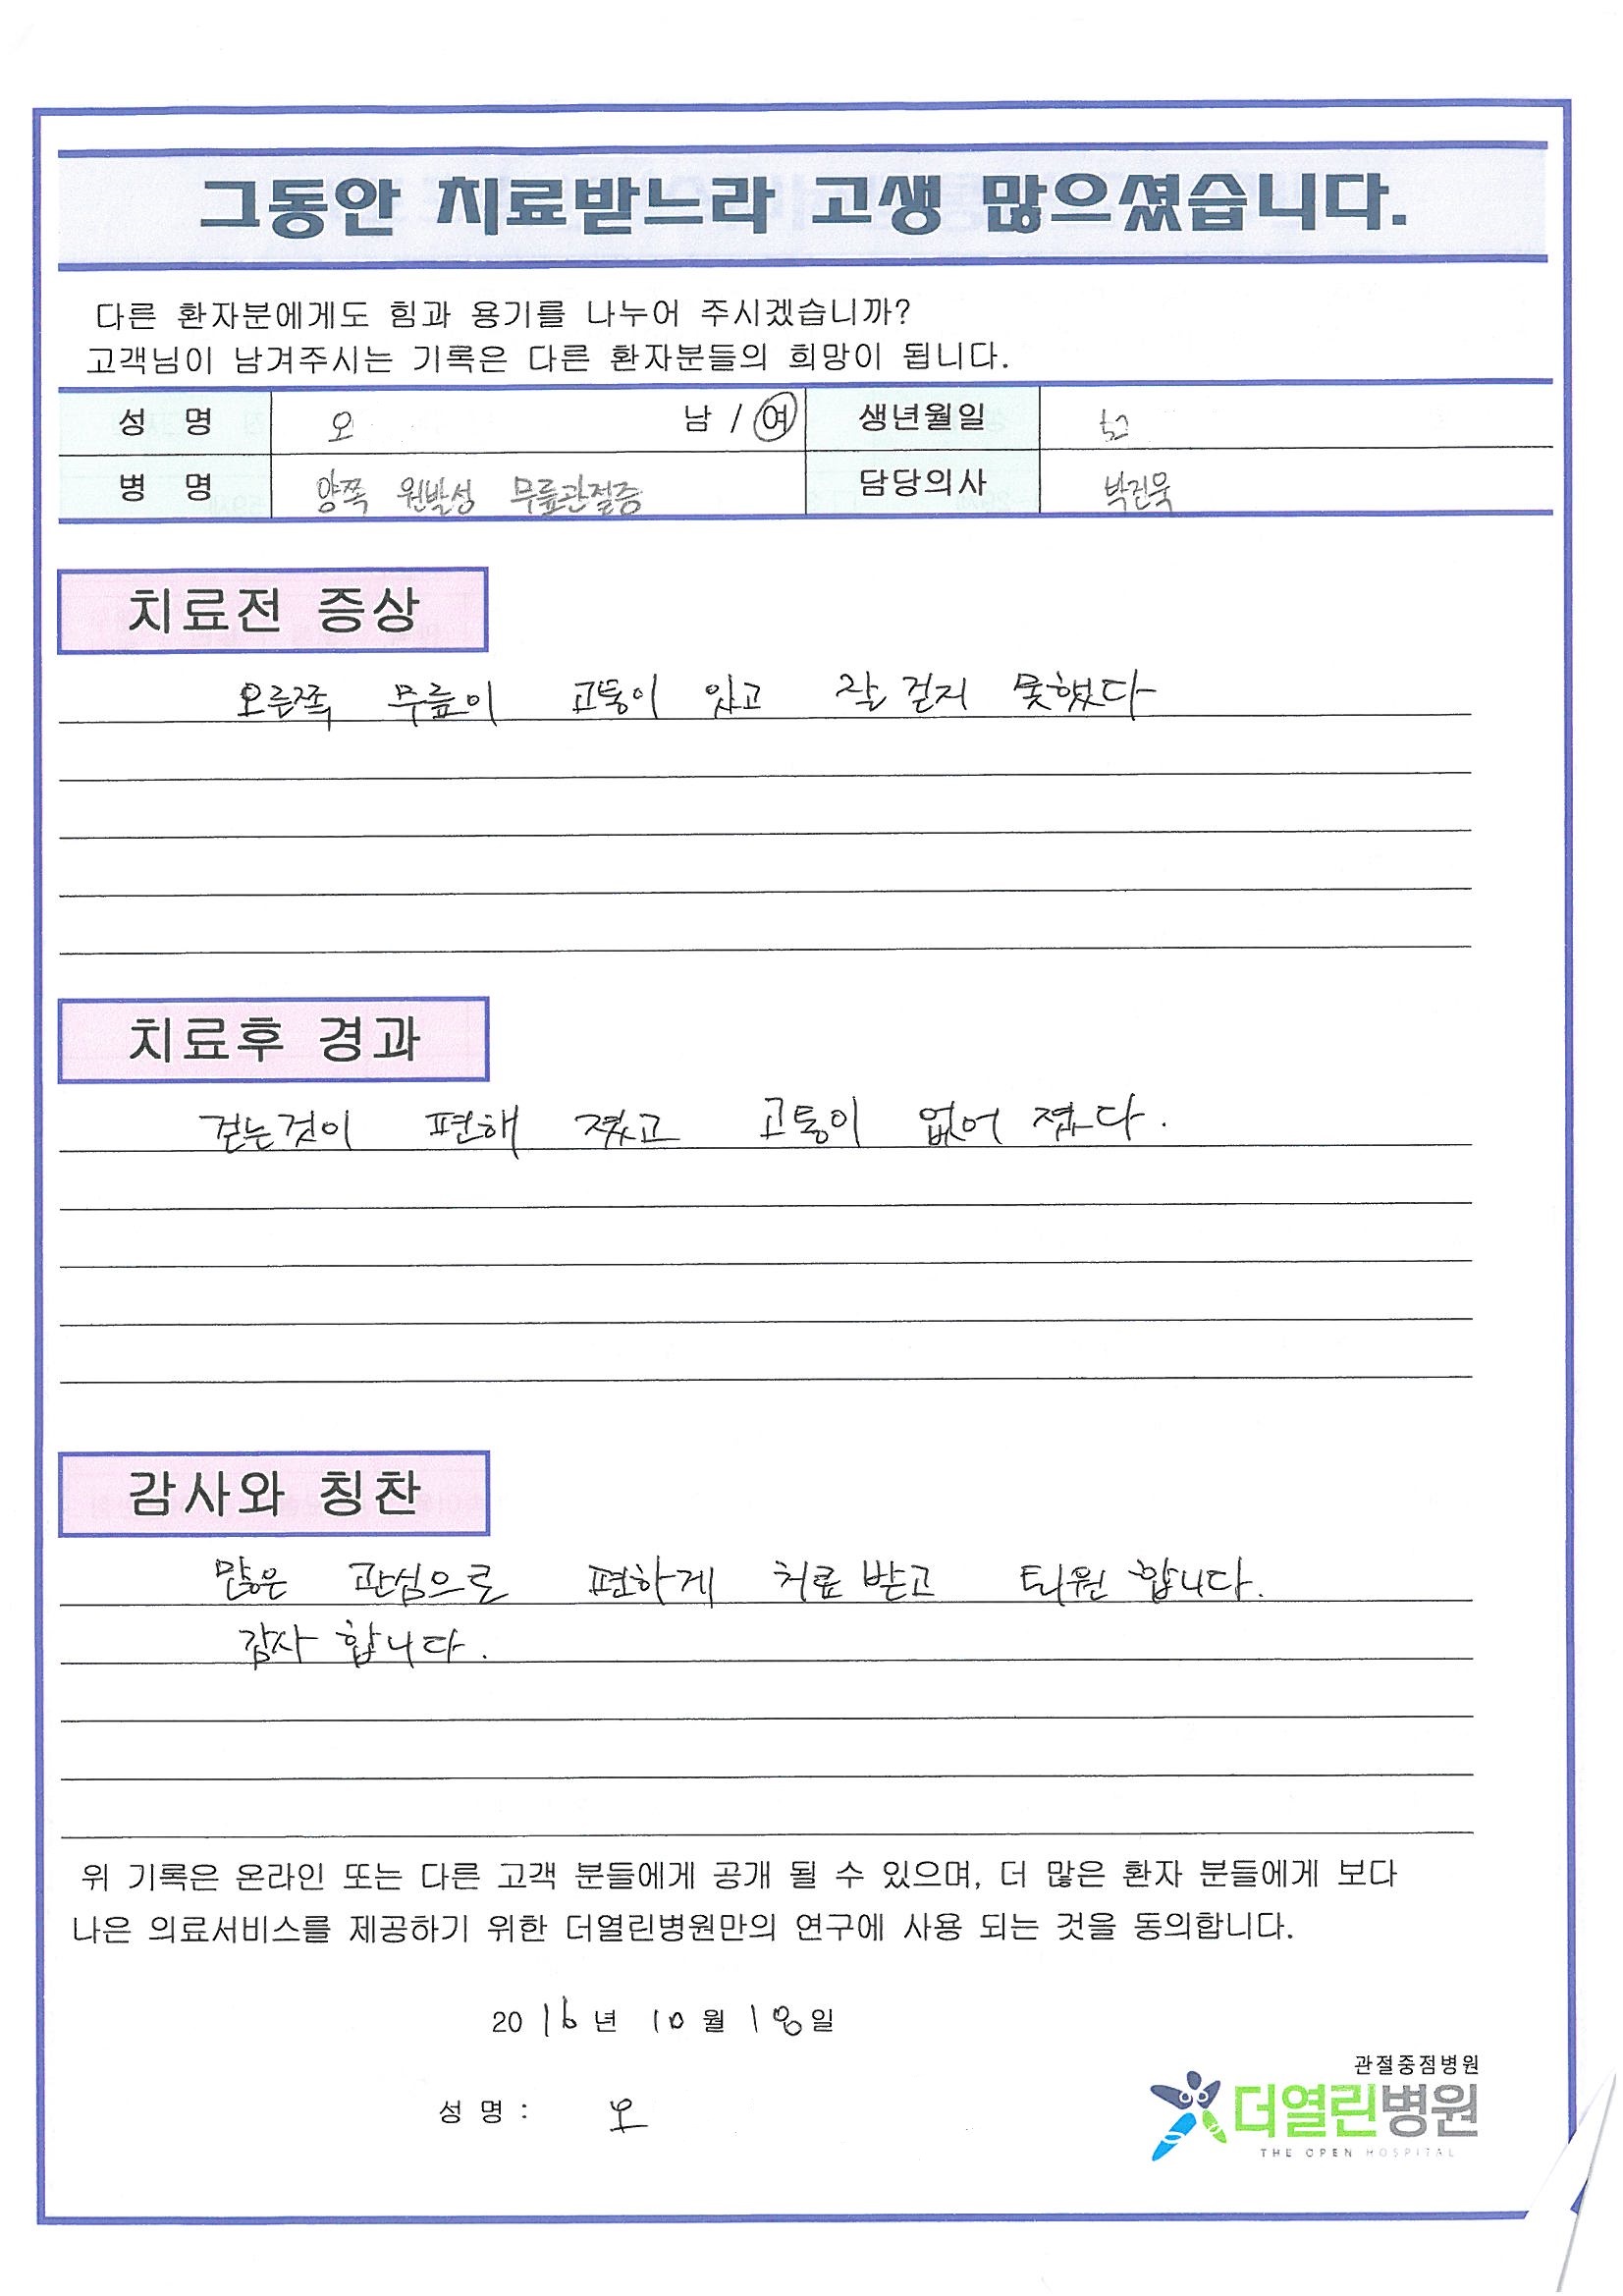 그동안 치료받느라 고생 많으셨습니다.
다른 환자분에게도 힘과 용기를 나누어 주시겠습니까?
고객님이 남겨주시는 기록은 다른 환자분들의 희망이 됩니다.
성 명 오 남 / 여 생년월일
병 명 양쪽 원발성 무릎관절증 담당의사 박진욱
치료전 증상
오른쪽 무릎이 고통이 있고 잘 걷지 못했다
치료후 경과
걷는것이 편해 졌고 고통이 없어 졌다.
감사와 칭찬
많은 관심으로 편하게 치료 받고 퇴원 합니다.
감사 합니다.
위 기록은 온라인 또는 다른 고객 분들에게 공개 될 수 있으며, 더 많은 환자 분들에게 보다
나은 의료서비스를 제공하기 위한 더열린병원만의 연구에 사용 되는 것을 동의합니다.
2016년 10월 18일
성 명 : 오
관절중점병원
더열린병원
THE OPEN HOSPITAL